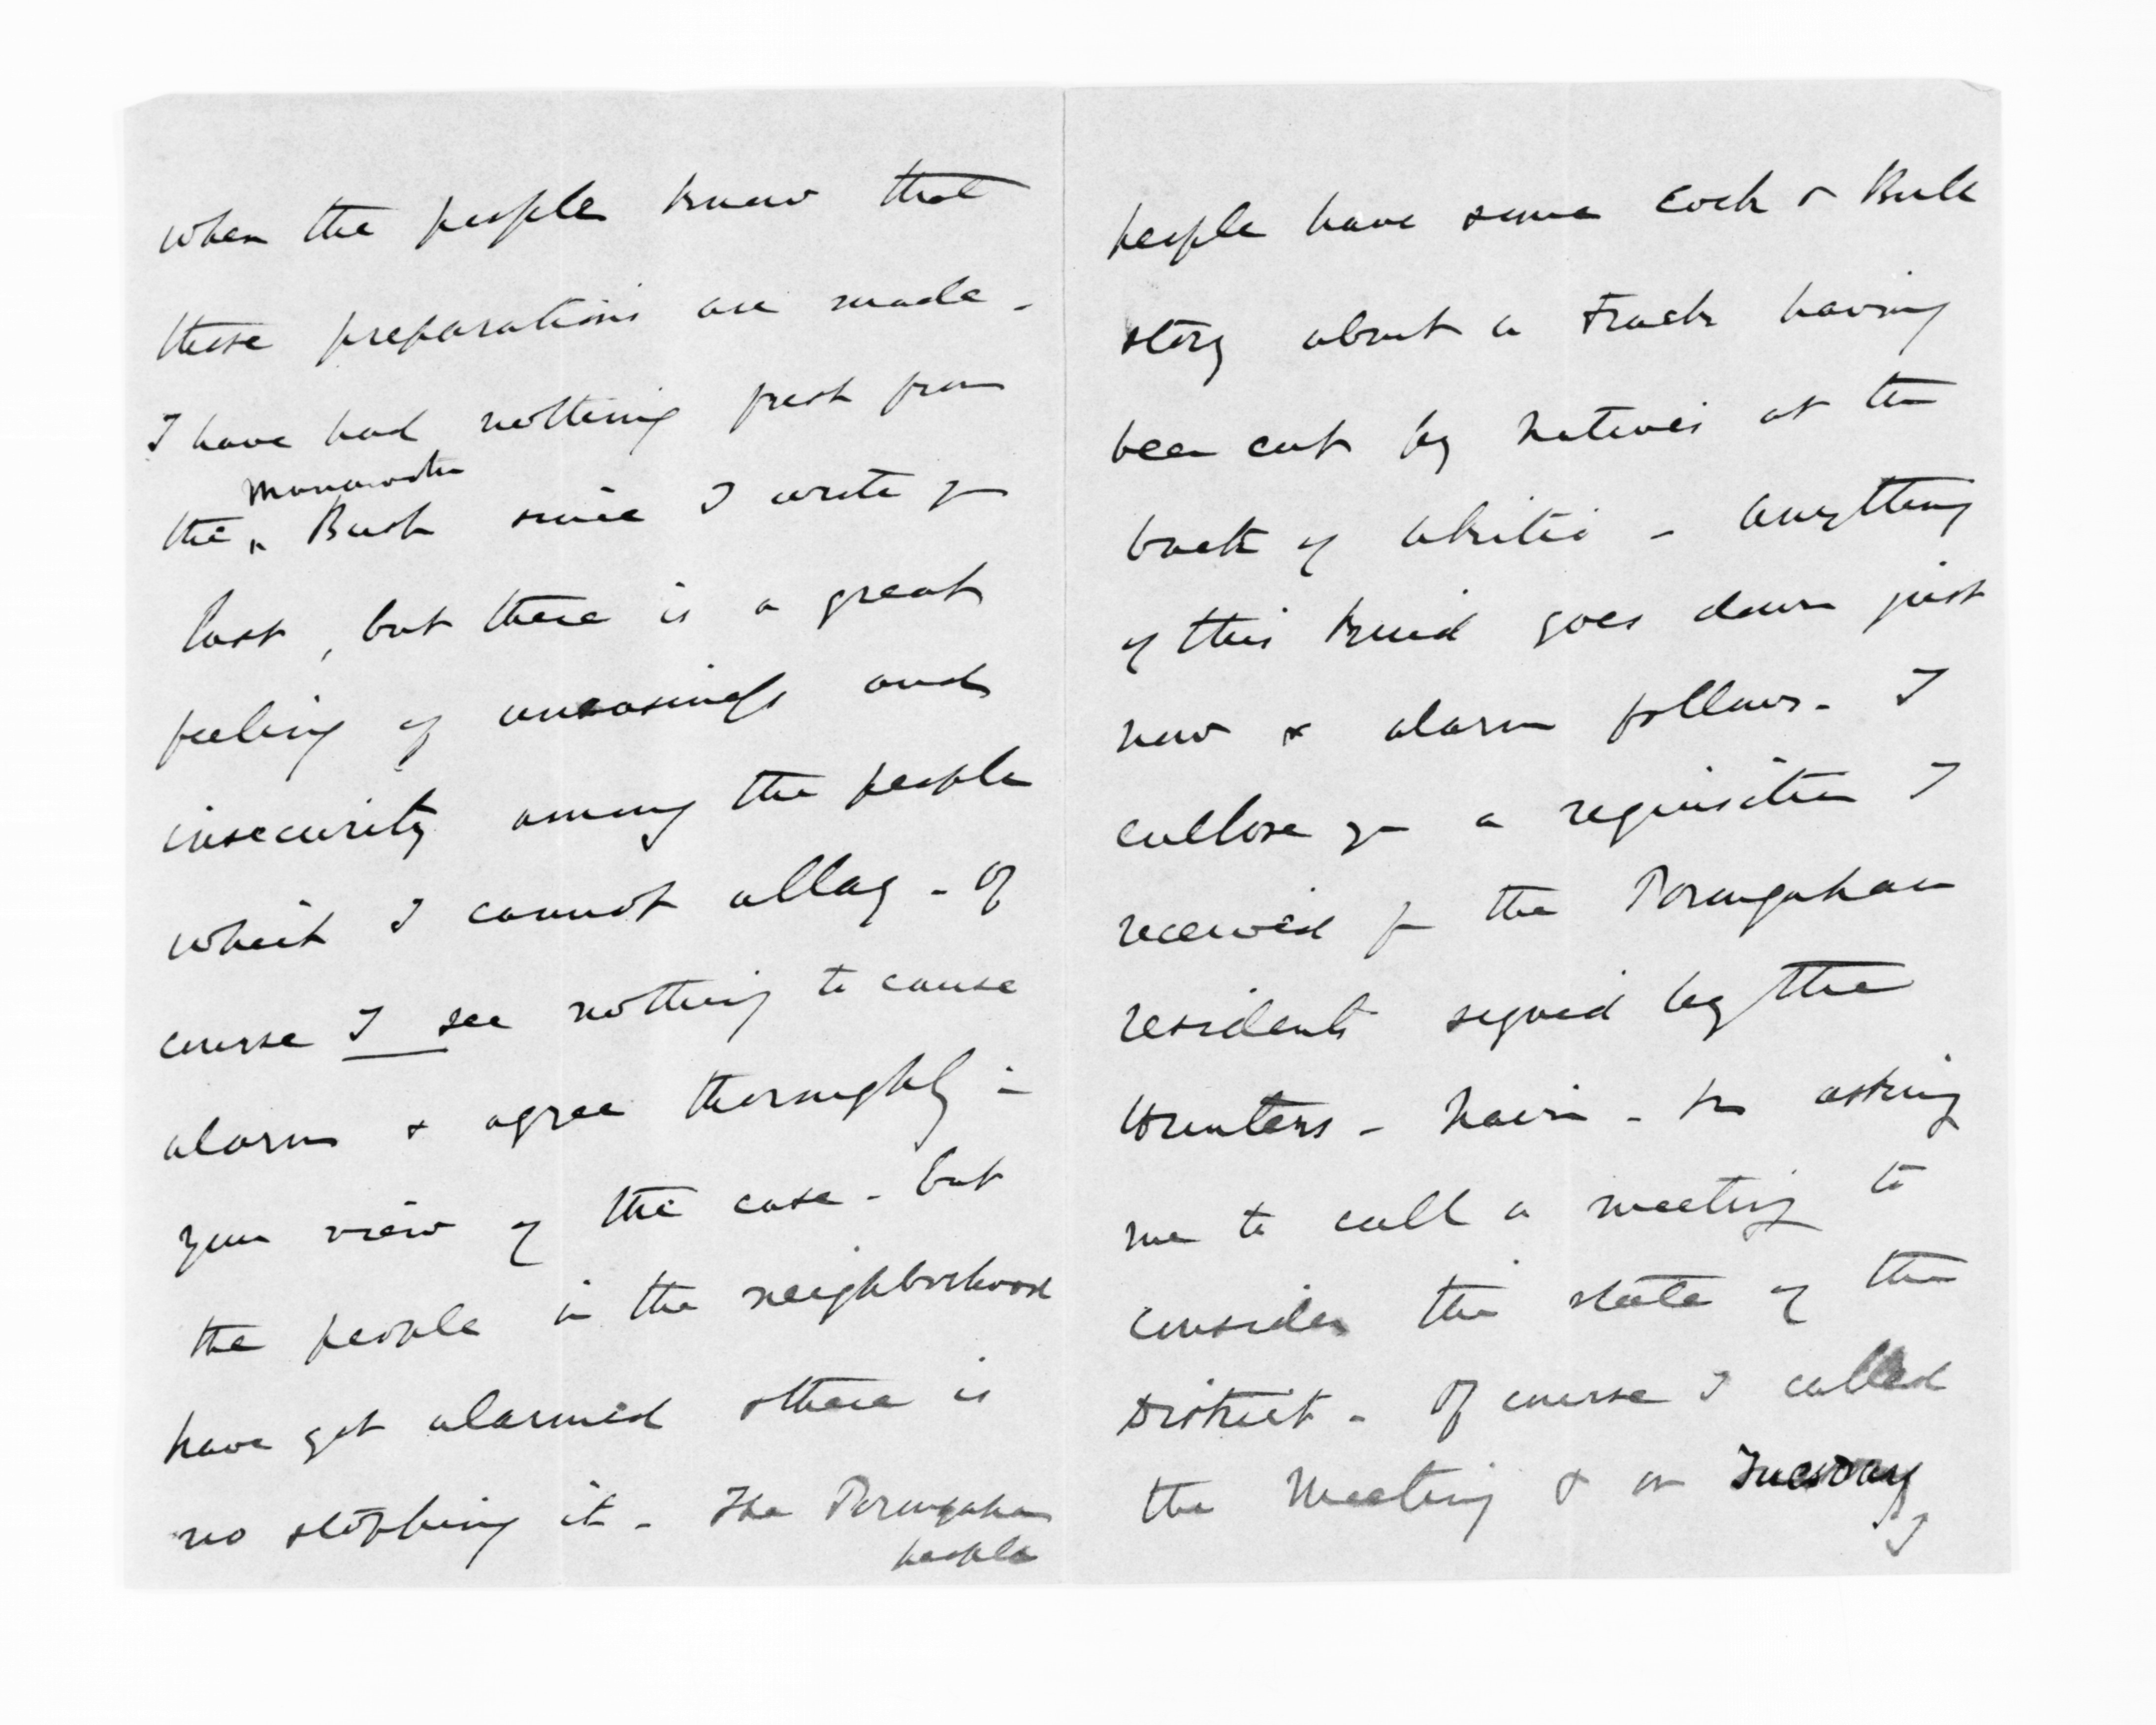 when the people know that
these preparations are made -
I have had nothing fresh from
Manawatu
the Bush since I wrote you
last, but there is a great
feeling of uneasiness and
insecurity among the people
which I cannot allay - Of
course I see nothing to cause
alarm & agree thoroughly in
your view of the case - but
the people in the neighborhood
have got alarmed & there is
no stopping it - The Porangahau
people
people have some Cock & Bull
story about a track having
been cut by natives at the
back of Akitio - Anything
of this kind goes down just
now & alarm follows - I
enclose you a requisition I
received fm the Porangahau
residents signed by the
Hunters - - &c asking
me to call a meeting to
consider the state of the
District - Of course I called
the Meeting & on Tuesday
I